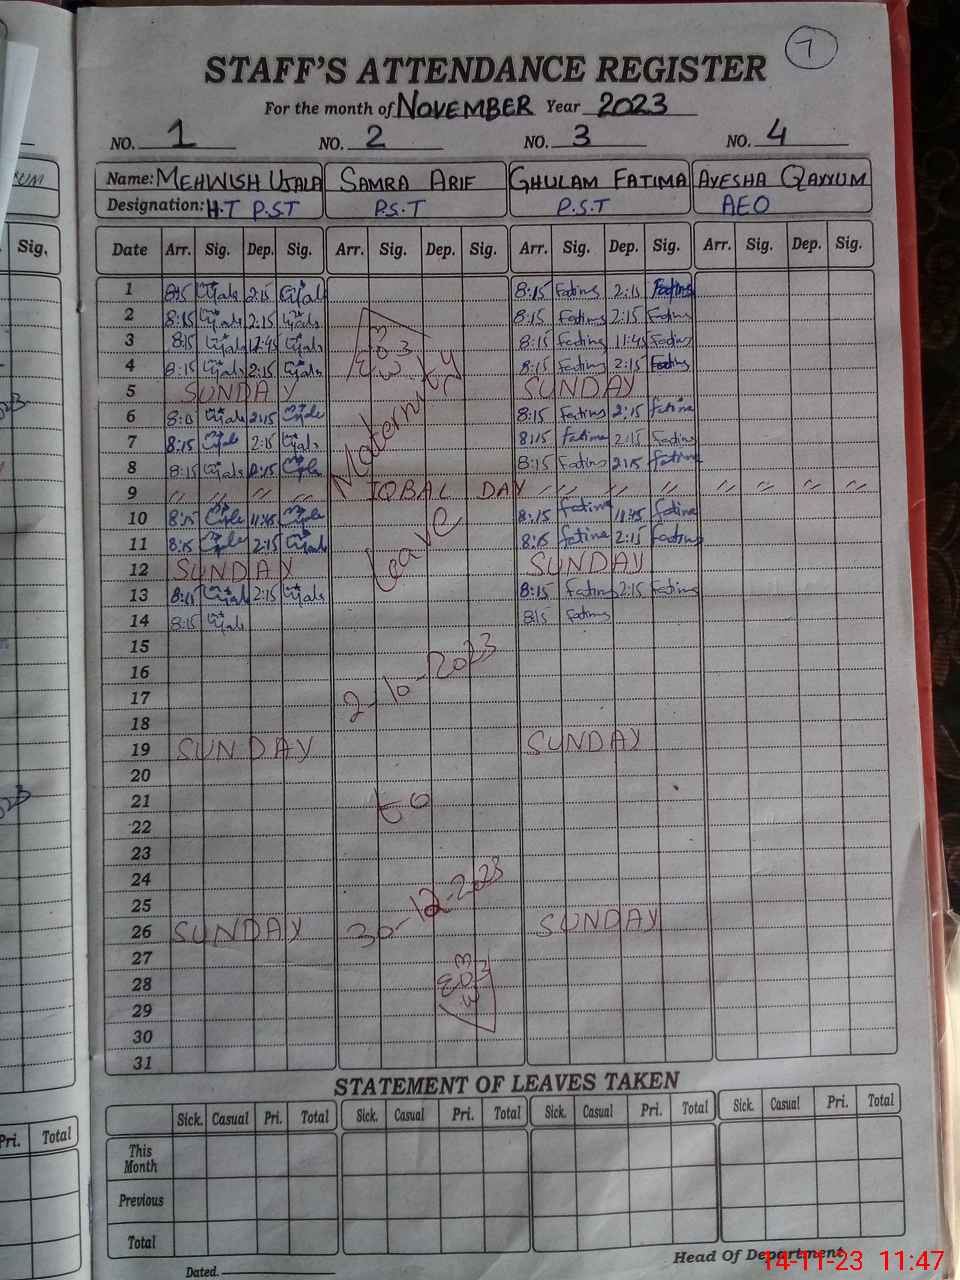 7
STAFF'S ATTENDANCE REGISTER
For the month of NOVEMBER Year 2023
NO. 1 NO. 2 NO. 3 NO. 4
Name: MEHWISH UJALA SAMRA ARIF GHULAM FATIMA AYESHA QAYYUM
Designation: H.T P.S.T P.S.T P.S.T AEO
Sig. Date Arr. Sig. Dep. Sig. Arr. Sig. Dep. Sig. Arr. Sig. Dep. Sig. Arr. Sig. Dep. Sig.
1 8:15 Ujala 2:15 Ujala 8:15 Fatima 2:15 Fatima
2 8:15 Ujala 2:15 Ujala 8:15 Fatima 2:15 Fatima
3 8:15 Ujala Ujala 8:15 Fatima 11:45 Fatima
4 8:15 Ujala 2:15 Ujala 8:15 Fatima 2:15 Fatima
5 SUNDAY SUNDAY
6 8:15 Ujala 2:15 Ujala 8:15 Fatima 2:15 Fatima
7 8:15 Ujala 2:15 Ujala 8:15 Fatima 2:15 Fatima
8 8:15 Ujala 2:15 Ujala 8:15 Fatima 2:15 Fatima
9 〃 〃 〃 〃 IQBAL DAY 〃 〃 〃 〃 〃 〃 〃 〃
10 8:15 Ujala 11:45 Ujala 8:15 Fatima 11:45 Fatima
11 8:15 Ujala 2:15 Ujala 8:15 Fatima 2:15 Fatima
12 SUNDAY SUNDAY
13 8:15 Ujala 2:15 Ujala 8:15 Fatima 2:15 Fatima
14 8:15 Ujala 8:15 Fatima
15
16
17
18
19 SUNDAY SUNDAY
20
21
22
23
24
25
26 SUNDAY SUNDAY
27
28
29
30
31
Maternity
Leave
2-10-2023
to
30-12-2023
STATEMENT OF LEAVES TAKEN
Pri. Total Sick. Casual Pri. Total Sick. Casual Pri. Total Sick. Casual Pri. Total Sick. Casual Pri. Total
This Month
Previous
Total
Dated.
Head Of Department
14-11-23 11:47